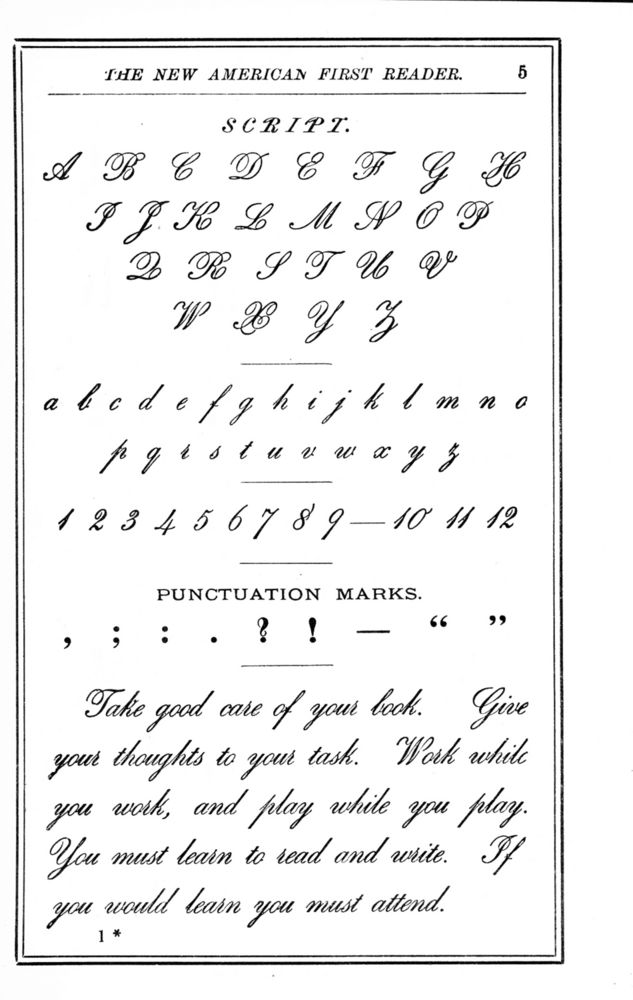 THE NEW AMERICAN FIRST READER. 5
SCRIPT.
A B C D E F G H
I J K L M N O P
Q R S T U V
W X Y Z
a b c d e f g h i j k l m n o
p q r s t u v w x y z
1 2 3 4 5 6 7 8 9 — 10 11 12
PUNCTUATION MARKS.
, ; : . ? ! — “ ”
Take good care of your book. Give
your thoughts to your task. Work while
you work, and play while you play.
You must learn to read and write. If
you would learn you must attend.
1 *